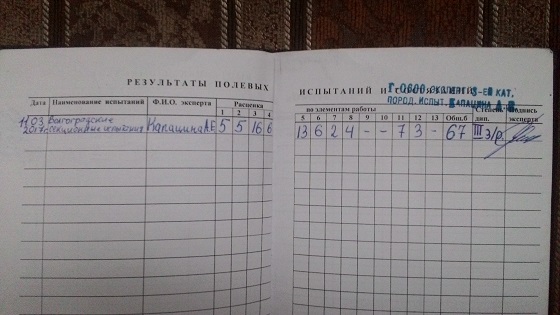 РЕЗУЛЬТАТЫ ПОЛЕВЫХ
Дата Наименование испытаний Ф.И.О. эксперта Расценка
1 2 3 4
11.03 Волгоградские
2017 секционные испытания Капацина А.Е 5 5 16 6
ИСПЫТАНИЙ И
ЭКСПЕРТ 3-ЕЙ КАТ.
ПОРОД. ИСПЫТ. КАПАЦИНА А.
по элементам работы Степень дип. Подпись эксперта
5 6 7 8 9 10 11 12 13 Общ.б
13 6 2 4 - - 7 3 - 67 III э/р.